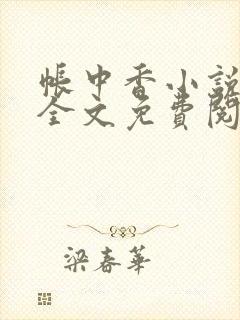 帐中香小説
全文免費閱
梁春華